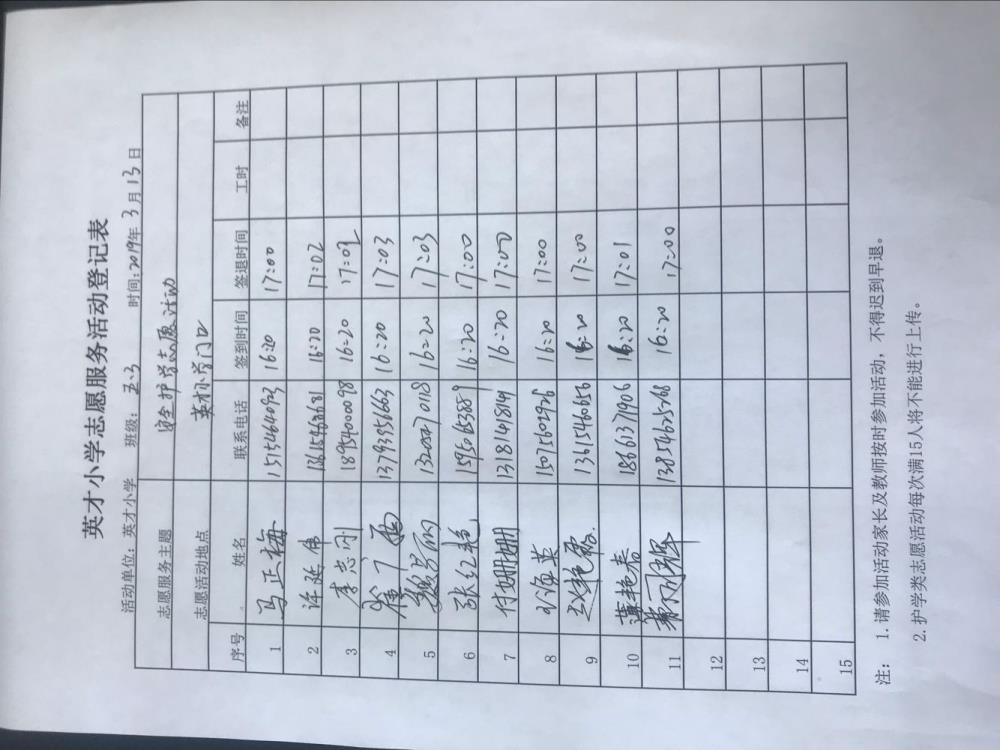 英才小学志愿服务活动登记表
活动单位：英才小学 班级：五、3 时间：2019年3月13日
志愿服务主题 安全护学志愿活动
志愿活动地点 英才小学门口
序号 姓名 联系电话 签到时间 签退时间 工时 备注
1 马正梅 15154640923 16:20 17:00
2 许延伟 13615468681 16:20 17:02
3 李志刚 18954000098 16:20 17:02
4 13793956663 16:20 17:03
5 13205270118 16:20 17:03
6 张红艳 15950653889 16:20 17:00
7 付姗姗 13181418149 16:20 17:00
8 16:20 17:00
9 赵艳霞 13615460656 16:20 17:00
10 燕春 18661371906 16:20 17:01
11 13854625268 16:20 17:00
12
13
14
15
注： 1. 请参加活动家长及教师按时参加活动，不得迟到早退。
2. 护学类志愿活动每次满15人将不能进行上传。